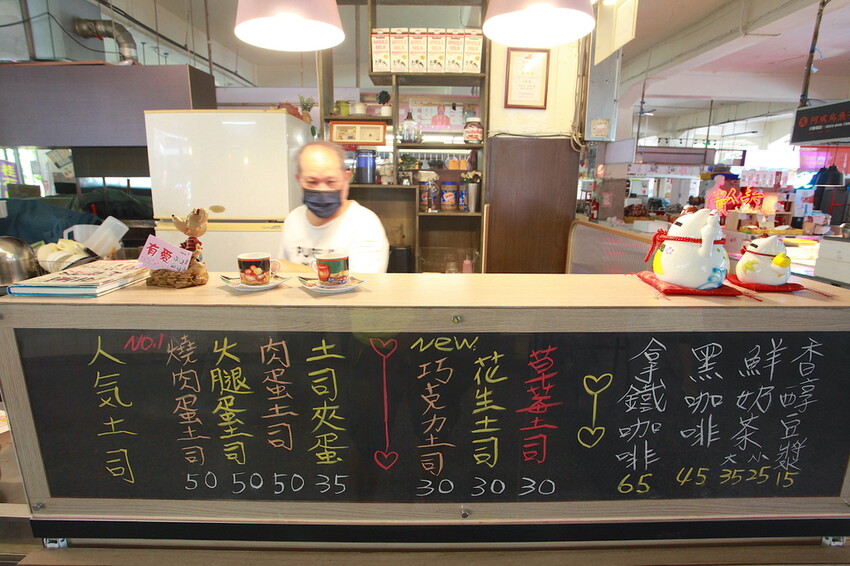 有愛
人気土司
NO.1
燒肉蛋土司
50
火腿蛋土司
50
肉蛋土司
50
土司夾蛋
35
New.
巧克力土司
30
花生土司
30
草莓土司
30
拿鐵咖啡
65
黑咖啡
45
鮮奶茶
大 小
35 25
香醇豆漿
15